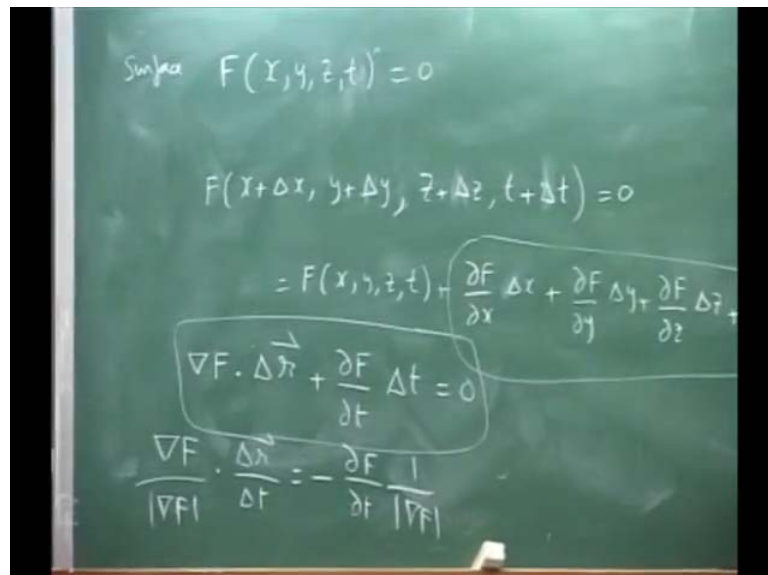 Surface F(x,y,z,t) = 0
F(x+Δx, y+Δy, z+Δz, t+Δt) = 0
= F(x,y,z,t) + ∂F/∂x Δx + ∂F/∂y Δy + ∂F/∂z Δz +
∇F · Δr⃗ + ∂F/∂t Δt = 0
∇F/|∇F| · Δr⃗/Δt = - ∂F/∂t 1/|∇F|